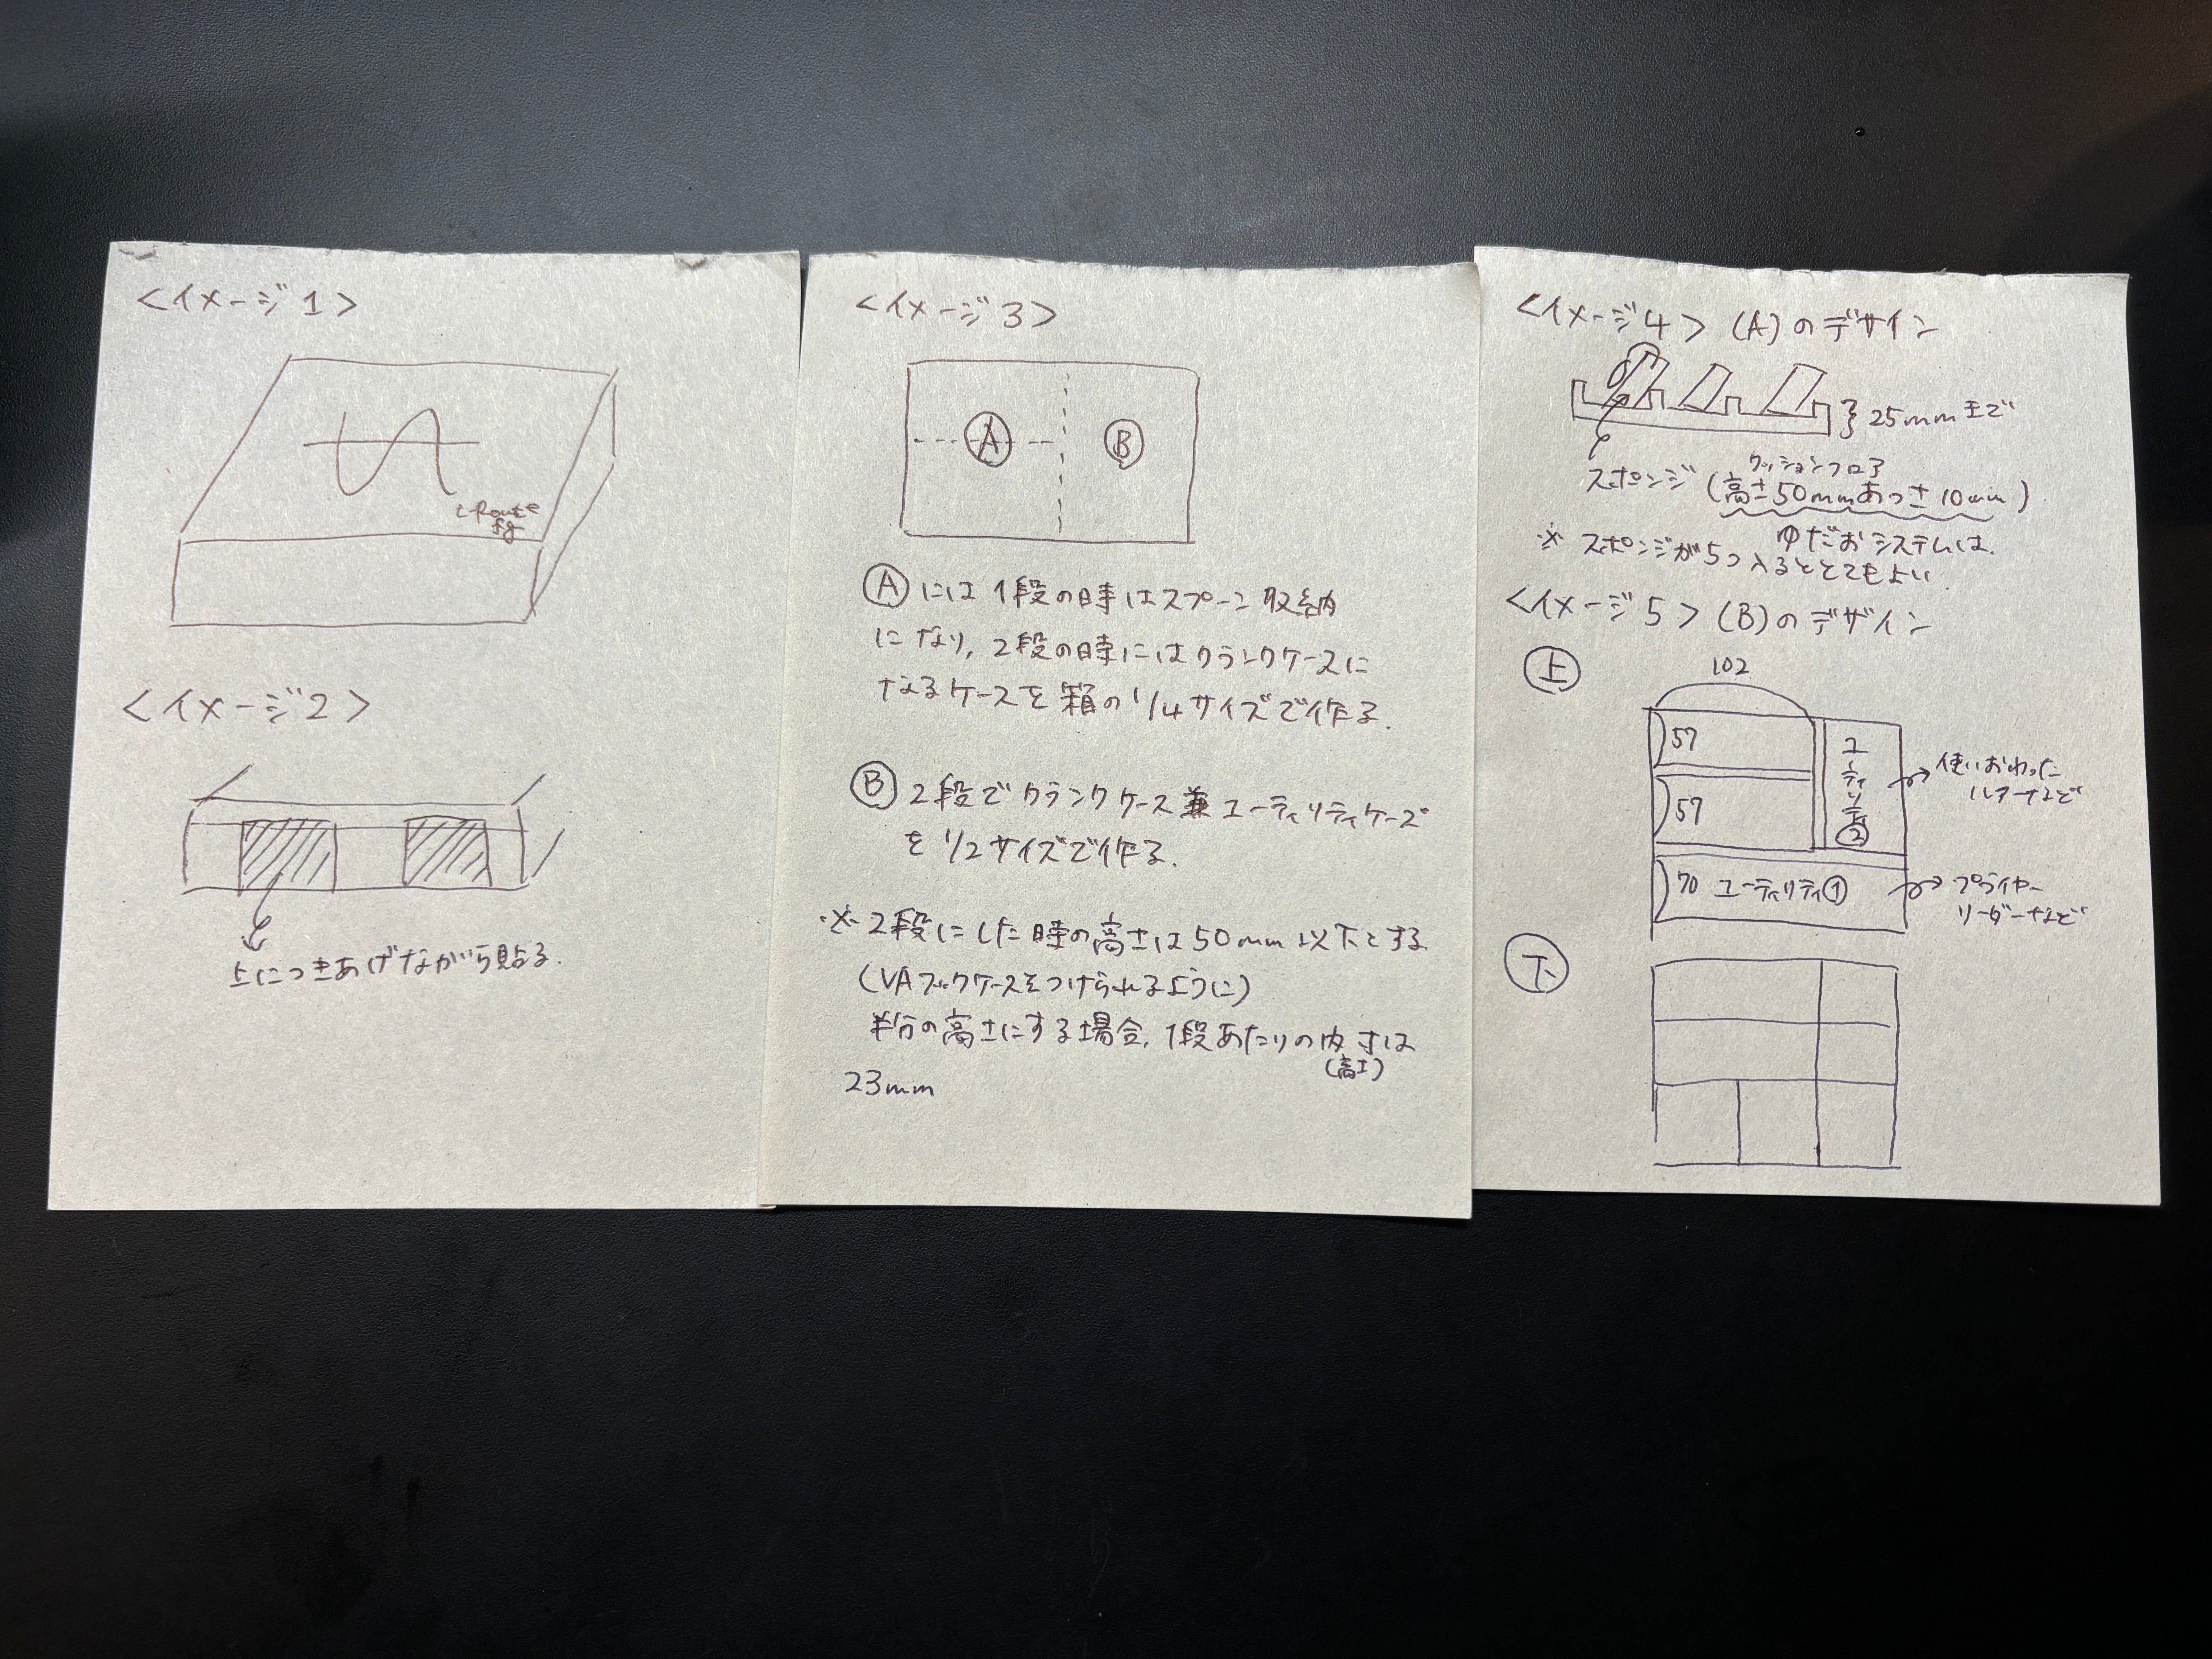 <イメージ1>
<イメージ2>
上につきあげながら貼る.
<イメージ3>
A
B
Ⓐには1段の時はスプーン収納
になり,2段の時にはクランクケースに
なるケースを箱の1/4サイズで作る.
Ⓑ2段でクランクケース兼ユーティリティケース
を1/2サイズで作る.
※2段にした時の高さは50mm以下とする
(VAフックケースをつけられるように)
半分の高さにする場合,1段あたりの内寸は
(高さ)
23mm
<イメージ4>(A)のデザイン
25mmまで
クッションフロア
スポンジ(高さ50mmあつさ10mm)
ゆだおシステムは.
※スポンジが5つ入るととてもよい
<イメージ5>(B)のデザイン
上
102
57
57
ユーティリティ②
使いおわった
ルアーなど
70 ユーティリティ①
プライヤー
リーダーなど
下